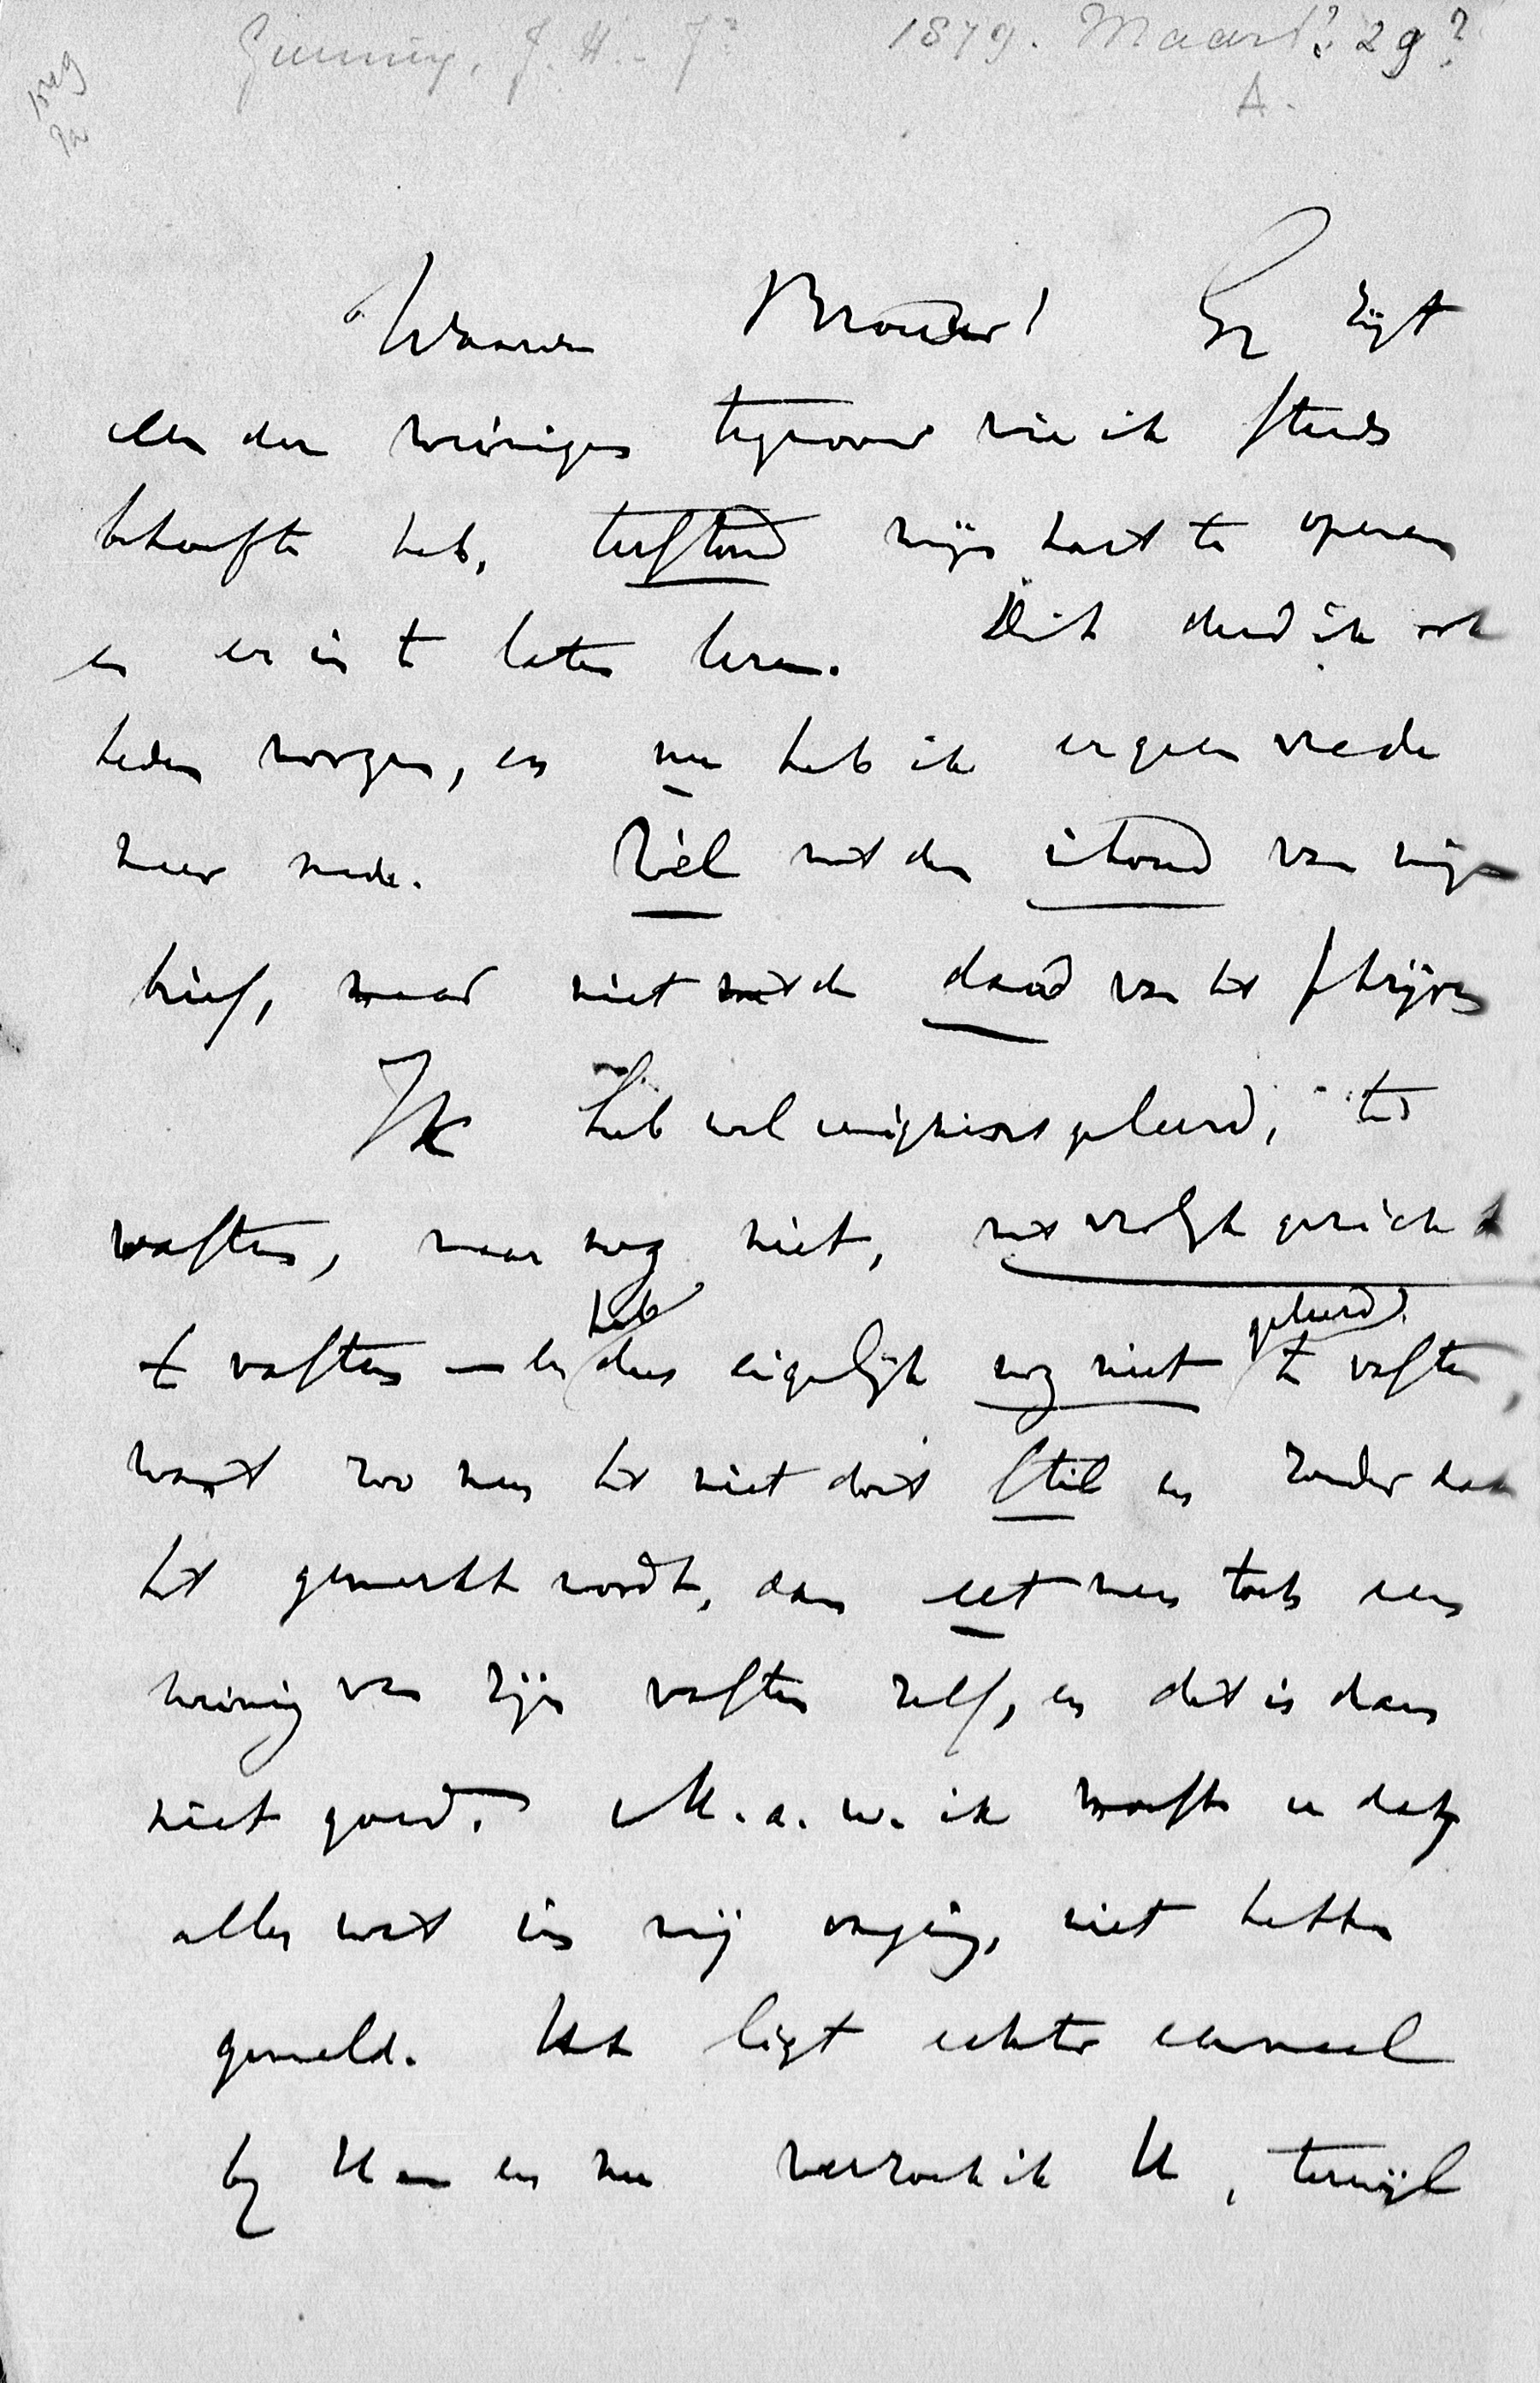 Gunning, J. H. Jr 1879. Maart? 29?
A.
Waarde Broeder! Gij zijt
een der weinigen tegenover wie ik steeds
behoefte heb, terstond mijn hart te openen
en er in te laten lezen. Dit deed ik ook
heden morgen, en nu heb ik er geen vrede
meer mede. Wèl met den inhoud van mijn
brief, maar niet met de daad van het schrijven
Ik heb wel eenigszins geleerd, te
vasten, maar nog niet, met vrolijk gezicht
te vasten — en heb dus eigenlijk nog niet geleerd te vasten,
want zoo men het niet doet stil en zonder dat
het gemerkt wordt, dan eet men toch een
weinig van zijn vasten zelf, en dit is dan
niet goed. M.a.w. ik moest u dat
alles wat in mij omging, niet hebben
gemeld. Het ligt echter eenmaal
bij U — en nu verzoek ik U, terwijl